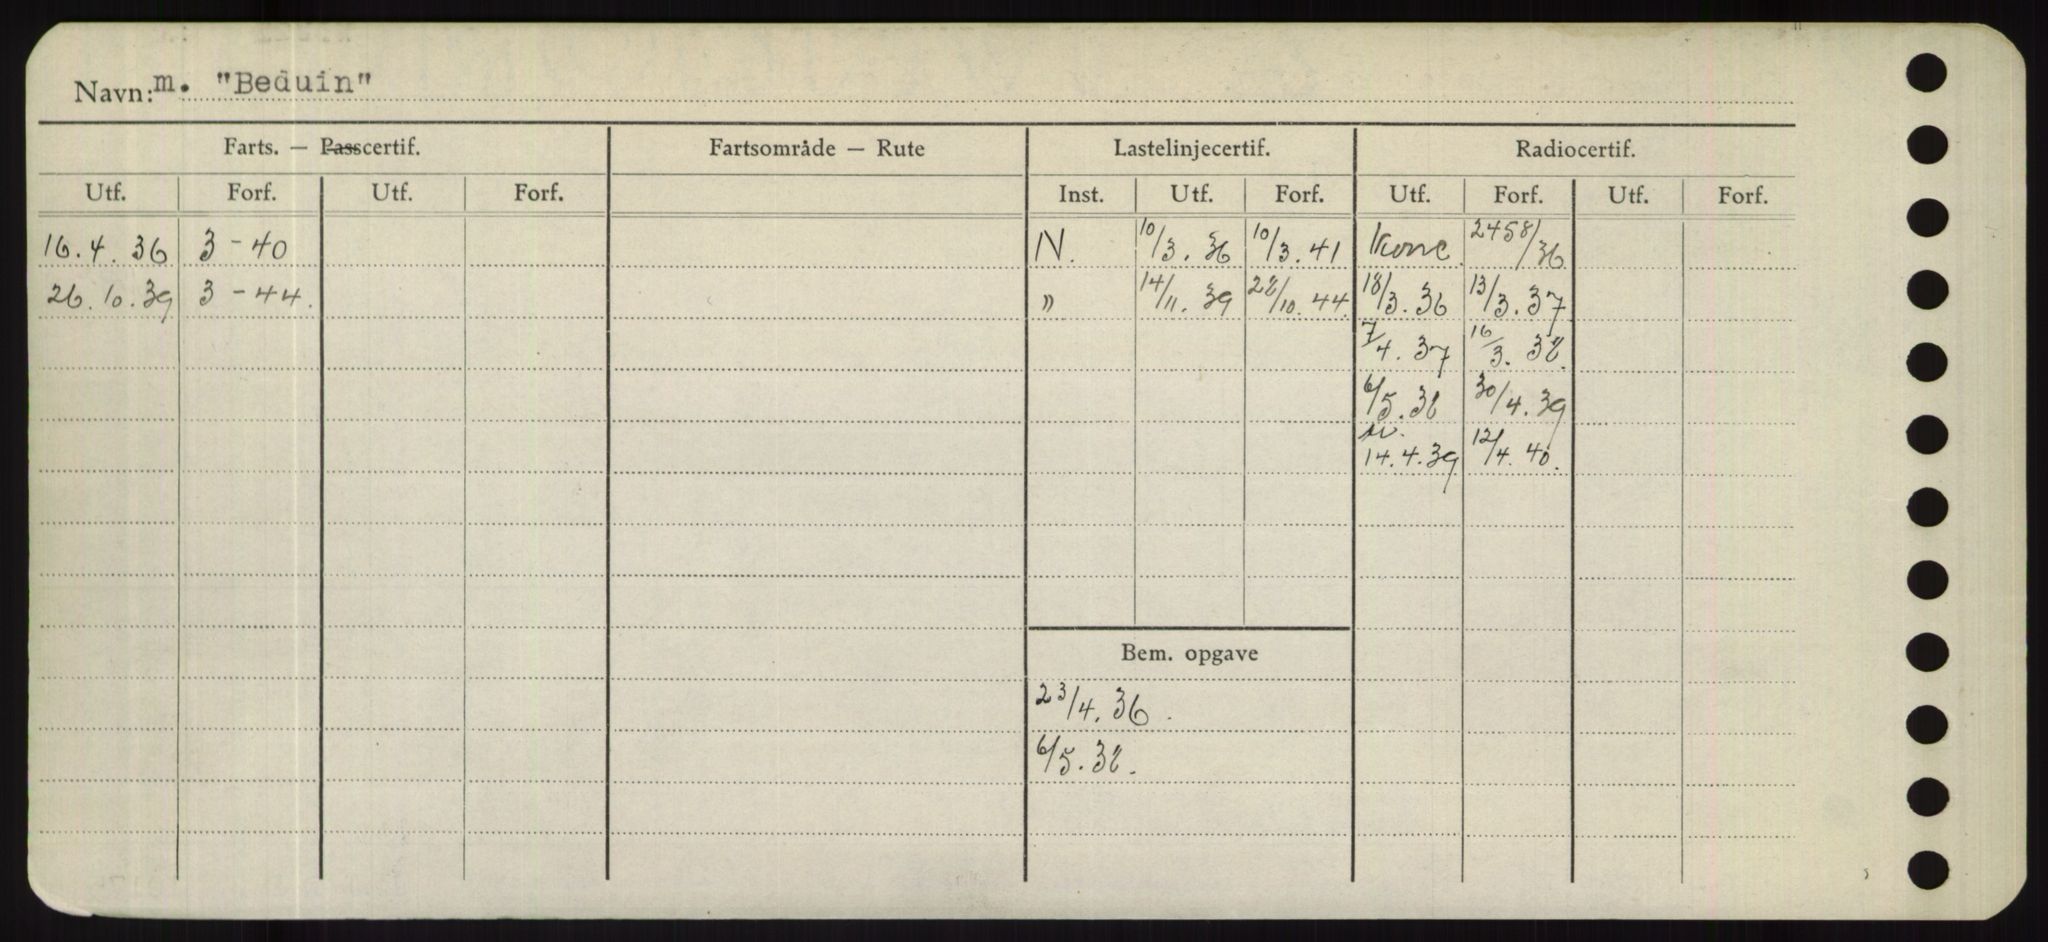 Navn: m. "Beduin"
Farts. — Passcertif. Fartsområde — Rute Lastelinjecertif. Radiocertif.
Utf. Forf. Utf. Forf. Inst. Utf. Forf. Utf. Forf. Utf. Forf.
16.4.36 3-40 N. 10/3.36 10/3.41 Konc. 2458/36
26.10.39 3-44. " 14/11.39 28/10.44. 18/3.36 13/3.37
7/4.37 16/3.38.
6/5.38 30/4.39
14.4.39 12/4.40.
Bem. opgave
23/4.36.
6/5.38.